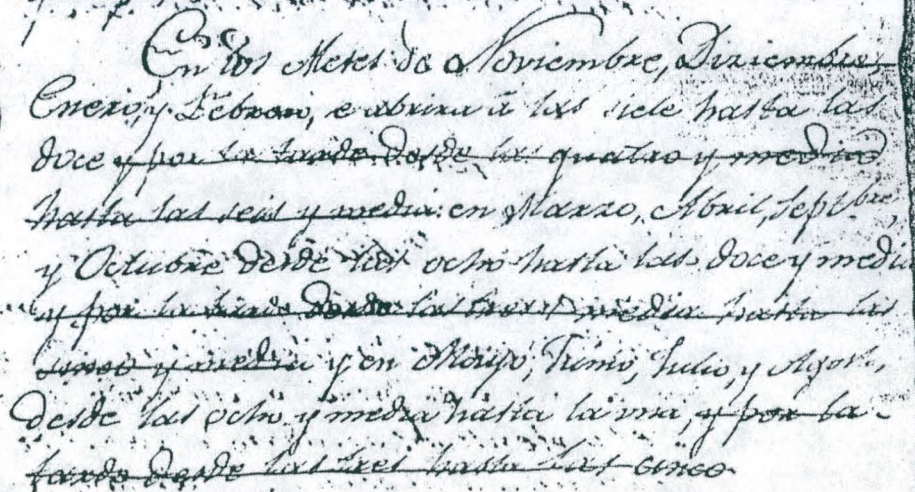 En los Meses de Noviembre, Diziembre,
Enero, y Febrero, e abrira à las siete hasta las
doce y por la tarde desde las quatro y media
hasta las seis y media: en Marzo, Abril, Septbre,
y Octubre desde las ocho hasta las doce y media
y por la tarde desde las tres y media hasta las
cinco y media y en Mayo, Junio, Julio, y Agosto,
desde las ocho y media hasta la una, y por la
tarde desde las tres hasta las cinco.